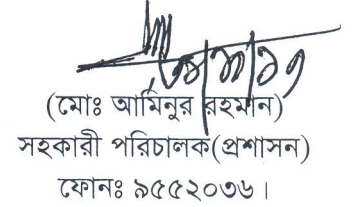 (মোঃ আমিনুর রহমান)
সহকারী পরিচালক(প্রশাসন)
ফোনঃ ৯৫৫২০৩৬।